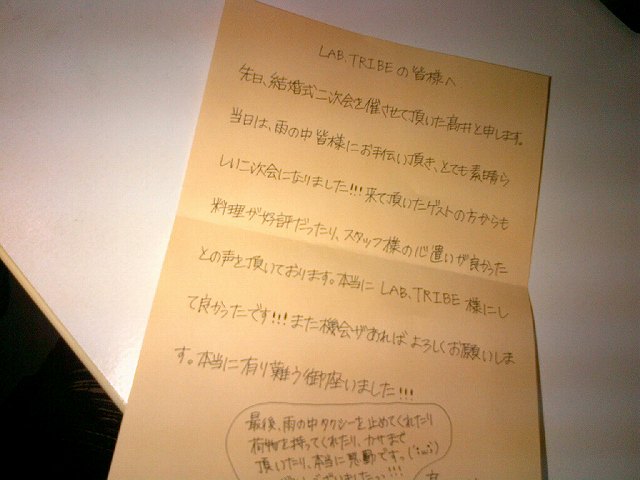 LAB.TRIBEの皆様へ
先日、結婚式二次会を催させて頂いた髙井と申します。
当日は、雨の中皆様にお手伝い頂き、とても素晴ら
しい二次会になりました!!!来て頂いたゲストの方からも
料理が好評だったり、スタッフ様の心遣いが良かった
との声を頂いております。本当にLAB.TRIBE様にし
て良かったです!!!また機会があればよろしくお願いしま
す。本当に有り難う御座いました!!!
最後、雨の中タクシーを止めてくれたり
荷物を持ってくれたり、カサまで
頂いたり、本当に感動ですっ